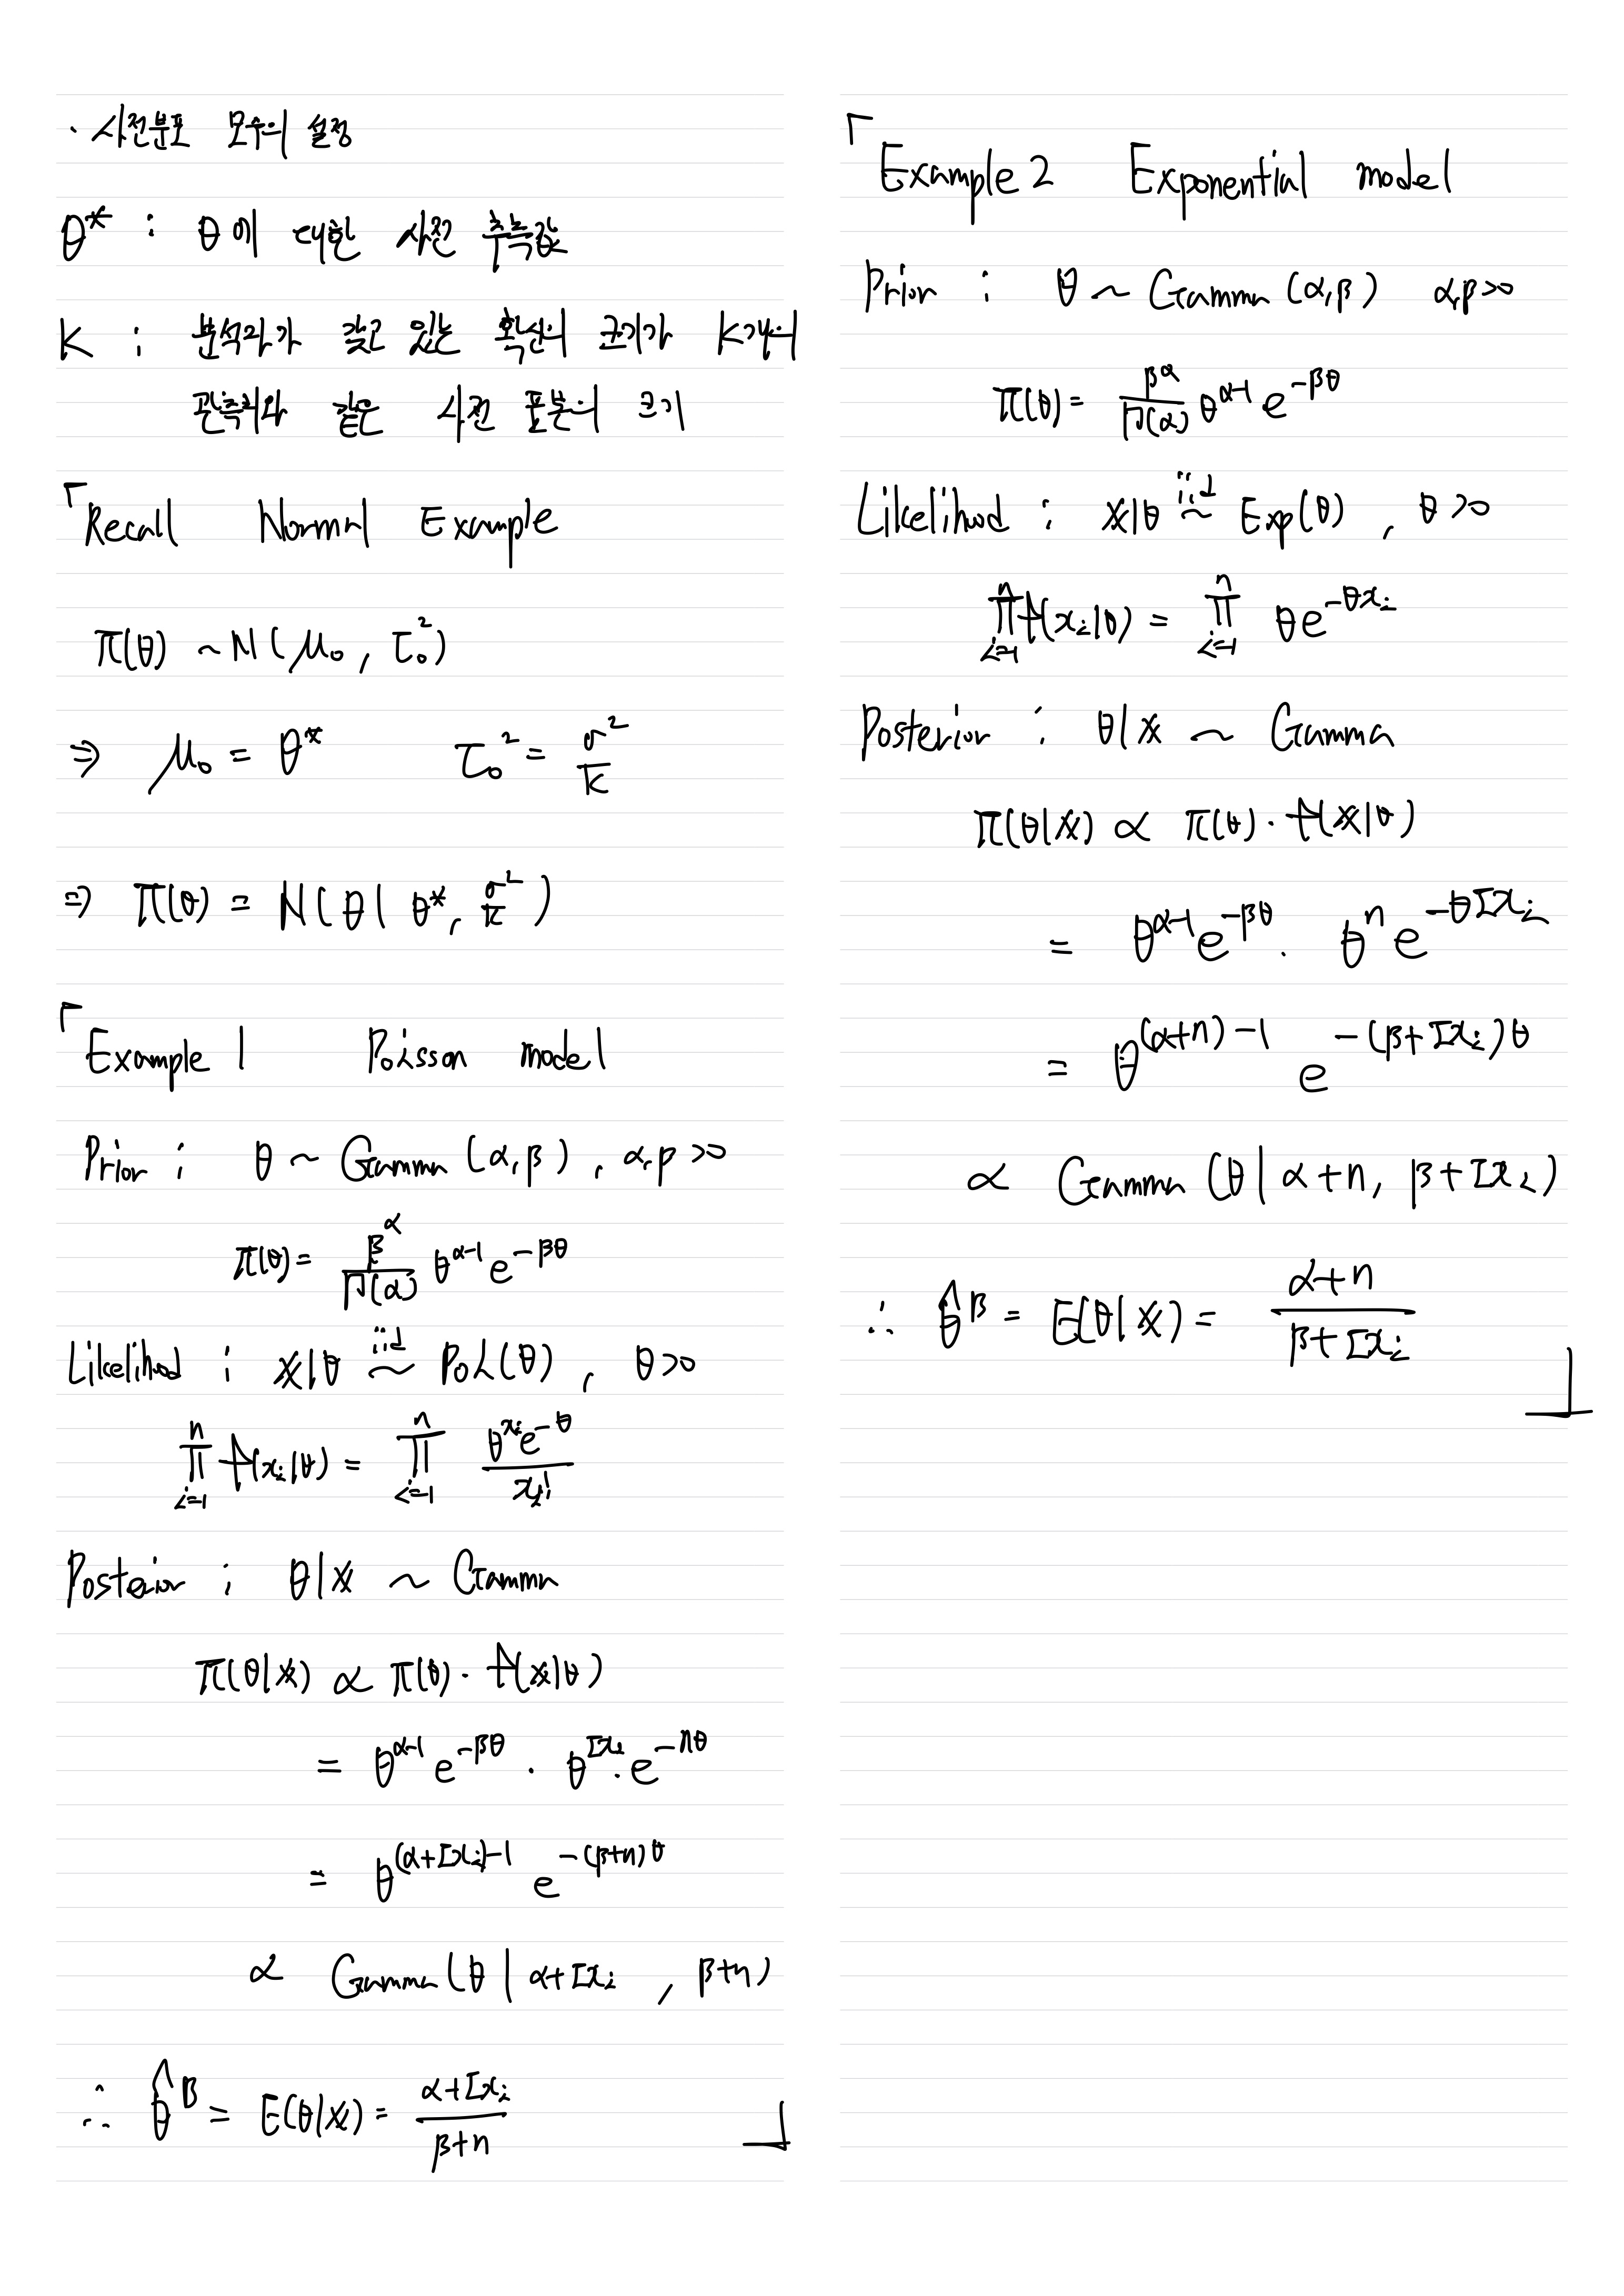 · 사전분포 모수의 설정
θ* : θ에 대한 사전 추측값
K : 분석자가 갖고 있는 확신의 크기가 K개의
관측치와 같은 사전 표본의 크기
「Recall Normal Example
π(θ) ~ N(μ₀, τ₀²)
⇒ μ₀ = θ* τ₀² = σ²/K
⇒ π(θ) = N(θ | θ*, σ²/K)
「Example 1 Poisson model
Prior : θ ~ Gamma (α,β), α,β>0
π(θ) = β^α/Γ(α) θ^(α-1) e^(-βθ)
Likelihood : x|θ iid~ Poi(θ), θ>0
∏_{i=1}^{n} f(x_i|θ) = ∏_{i=1}^{n} θ^(x_i) e^(-θ) / x_i!
Posterior : θ|x ~ Gamma
π(θ|x) ∝ π(θ)·f(x|θ)
= θ^(α-1) e^(-βθ) · θ^(Σx_i) · e^(-nθ)
= θ^((α+Σx_i)-1) e^(-(β+n)θ)
∝ Gamma(θ | α+Σx_i , β+n)
∴ θ̂^B = E(θ|x) = (α+Σx_i)/(β+n) 」
「Example 2 Exponential model
Prior : θ ~ Gamma (α,β) α,β>0
π(θ) = β^α/Γ(α) θ^(α-1) e^(-βθ)
Likelihood : x|θ iid~ Exp(θ), θ>0
∏_{i=1}^{n} f(x_i|θ) = ∏_{i=1}^{n} θe^(-θx_i)
Posterior : θ|x ~ Gamma
π(θ|x) ∝ π(θ)·f(x|θ)
= θ^(α-1) e^(-βθ) · θ^n e^(-θΣx_i)
= θ^((α+n)-1) e^(-(β+Σx_i)θ)
∝ Gamma (θ | α+n, β+Σx_i)
∴ θ̂^B = E(θ|x) = (α+n)/(β+Σx_i) 」